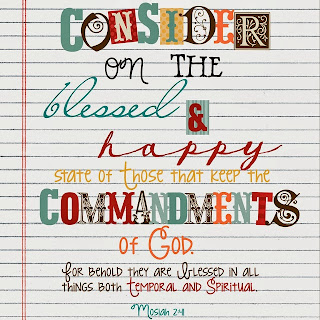 CONSIDER
on THE
blessed &
happy
state of those that keep the
COMMANDMENTS
of God.
for behold they are blessed in all
things both temporal and spiritual.
Mosiah 2:41